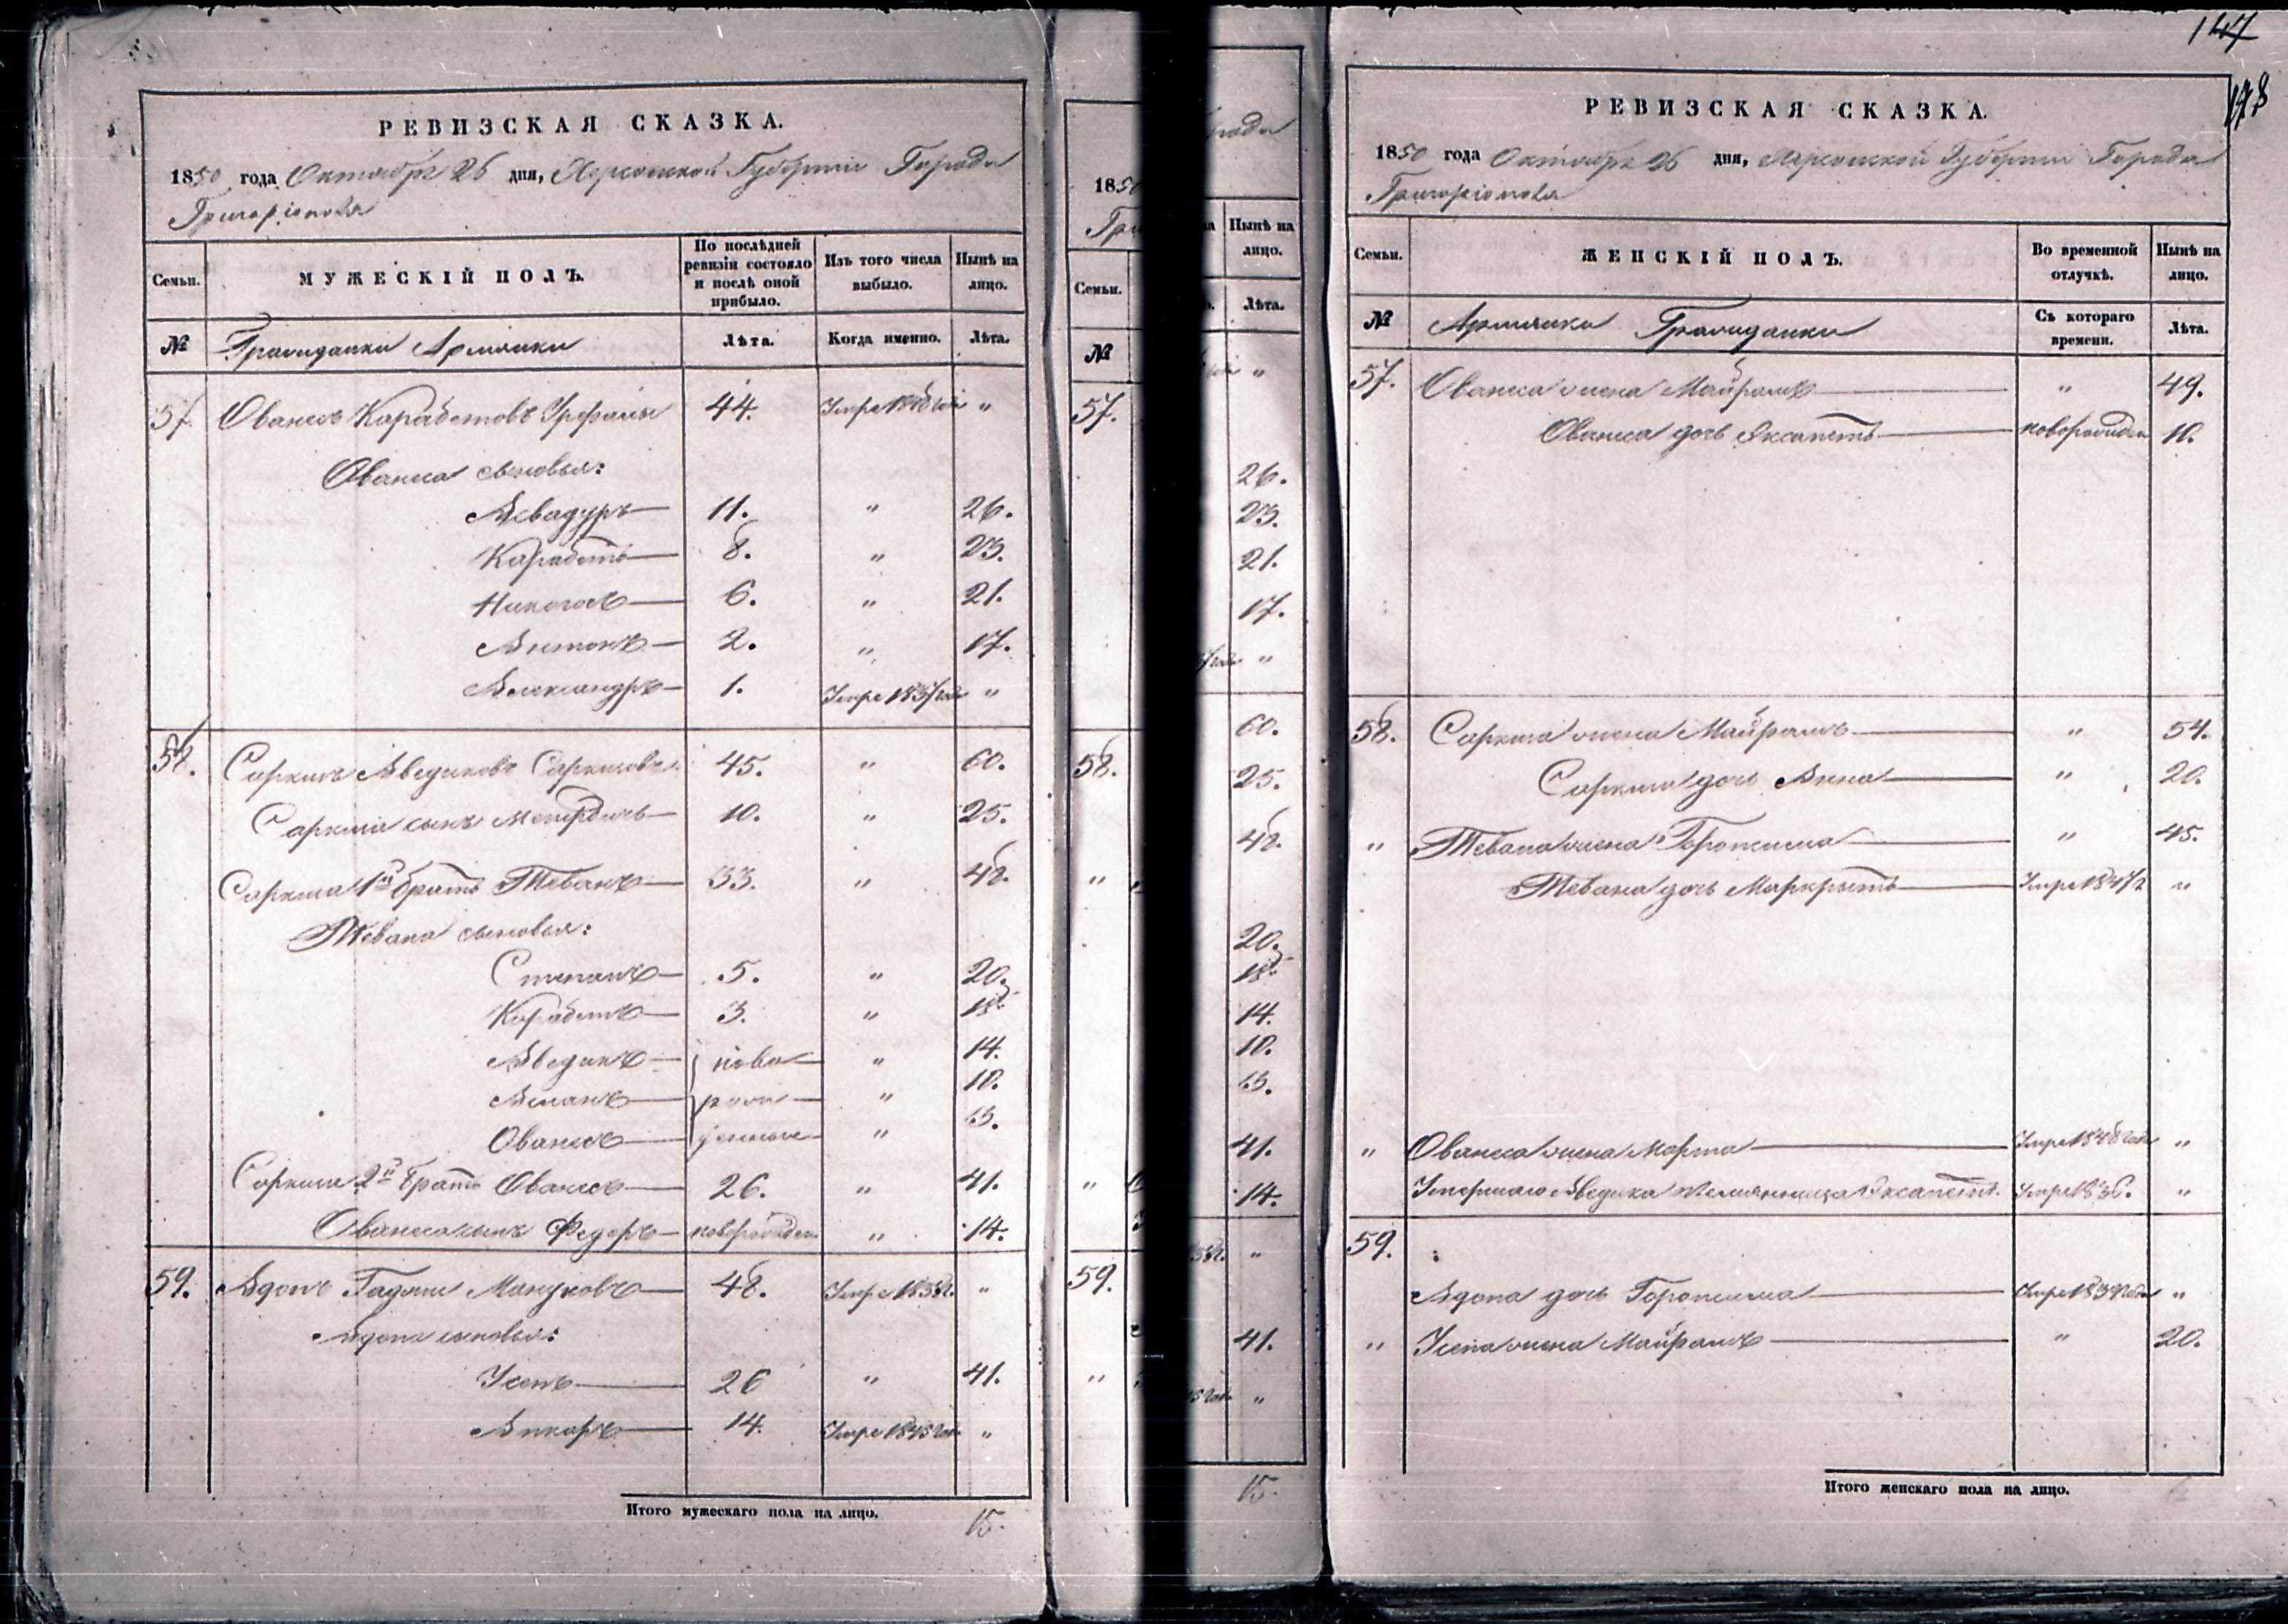 РЕВИЗСКАЯ СКАЗКА.
1850 года Октября 26 дня, Херсонской Губернии Города
Григоріополя
Семьи. МУЖЕСКІЙ ПОЛЪ. По послѣдней ревизіи состояло и послѣ оной прибыло. Изъ того числа выбыло. Нынѣ на лицо.
№ Гражданки Армянки Лѣта. Когда именно. Лѣта.
57. Ованесъ Карабетовъ 44. Умре "
Ованеса сыновья:
Авадуръ 11. " 26.
Карабетъ 8. " 23.
Никогосъ 6. " 21.
Антонъ 2. " 17.
Александръ 1. Умре 1837 года "
58. Саркисъ Аведиковъ Саркисовъ 45. " 60.
Саркиса сынъ Мкрдичъ 10. " 25.
Саркиса 1й братъ Теванъ 33. " 48.
Тевана сыновья:
Степанъ 5. " 20.
Карабетъ 3. " 18.
Аведикъ ново " 14.
рож " 10.
Ованесъ денные "
Саркиса 2й братъ Ованесъ 26. " 41.
Ованеса сынъ Федоръ новорожден " 14.
59. Адомъ Мануковъ 48. Умре "
сыновья:
Усепъ 26 " 41.
14. Умре "
Итого мужескаго пола на лицо. 15.
1850
Гри
Семьи.
№
57.
58.
"
"
59.
"
Города
Нынѣ на лицо.
Лѣта.
"
26.
23.
21.
17.
"
60.
25.
48.
20.
18.
14.
10.
41.
14.
"
41.
"
15.
147
178
РЕВИЗСКАЯ СКАЗКА.
1850 года Октября 26 дня, Херсонской Губернии Города
Григоріополя
Семьи. ЖЕНСКІЙ ПОЛЪ. Во временной отлучкѣ. Нынѣ на лицо.
№ Армянки Гражданки Съ котораго времени. Лѣта.
57. Ованеса жена Майрамъ " 49.
Ованеса дочь новорожден 10.
58. Саркиса жена Майрамъ " 54.
Саркиса дочь Анна " 20.
" Тевана жена " 45.
Тевана дочь Маркрытъ Умре "
" Ованеса жена Марта Умре 1848 года "
Умершаго Аведика племянница Умре 1836. "
59.
дочь Умре "
" Усепа жена Майрамъ " 20.
Итого женскаго пола на лицо.